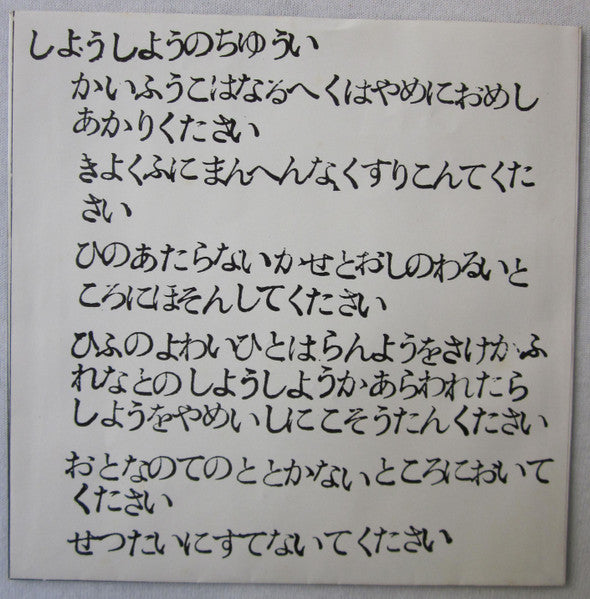 しようしようのちゆうい
かいふうこはなるへくはやめにおめし
あかりくたさい
きよくふにまんへんなくすりこんてくた
さい
ひのあたらないかせとおしのわるいと
ころにほそんしてください
ひふのよわいひとはらんようをさけかふ
れなとのしようしようかあらわれたら
しようをやめいしにこそうたんくたさい
おとなのてのととかないところにおいて
くたさい
せつたいにすてないてくたさい